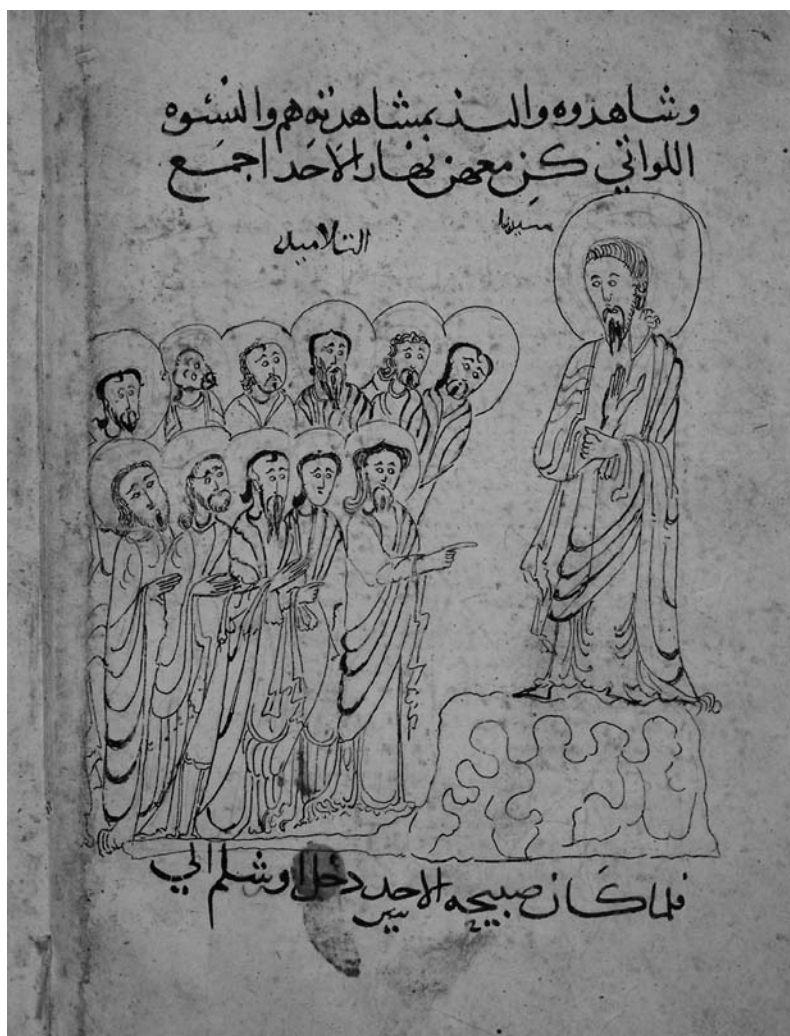 وشاهدوه والتذ بمشاهدته هم والنسوه
اللواتي كن معهن نهار الاحد اجمع
سيدنا
التلاميد
فلما كان صبيحه الاحد دخل اوشلم الي